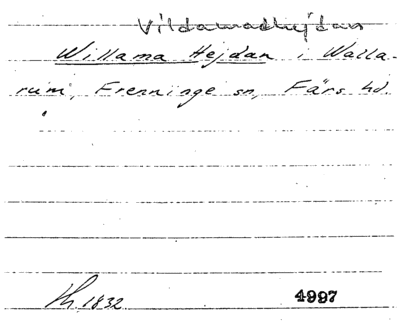 Vildamadhejdan
Willama Hejdan i Walla-
rum, Frenninge sn, Färs hd.
Th. 1832 4997